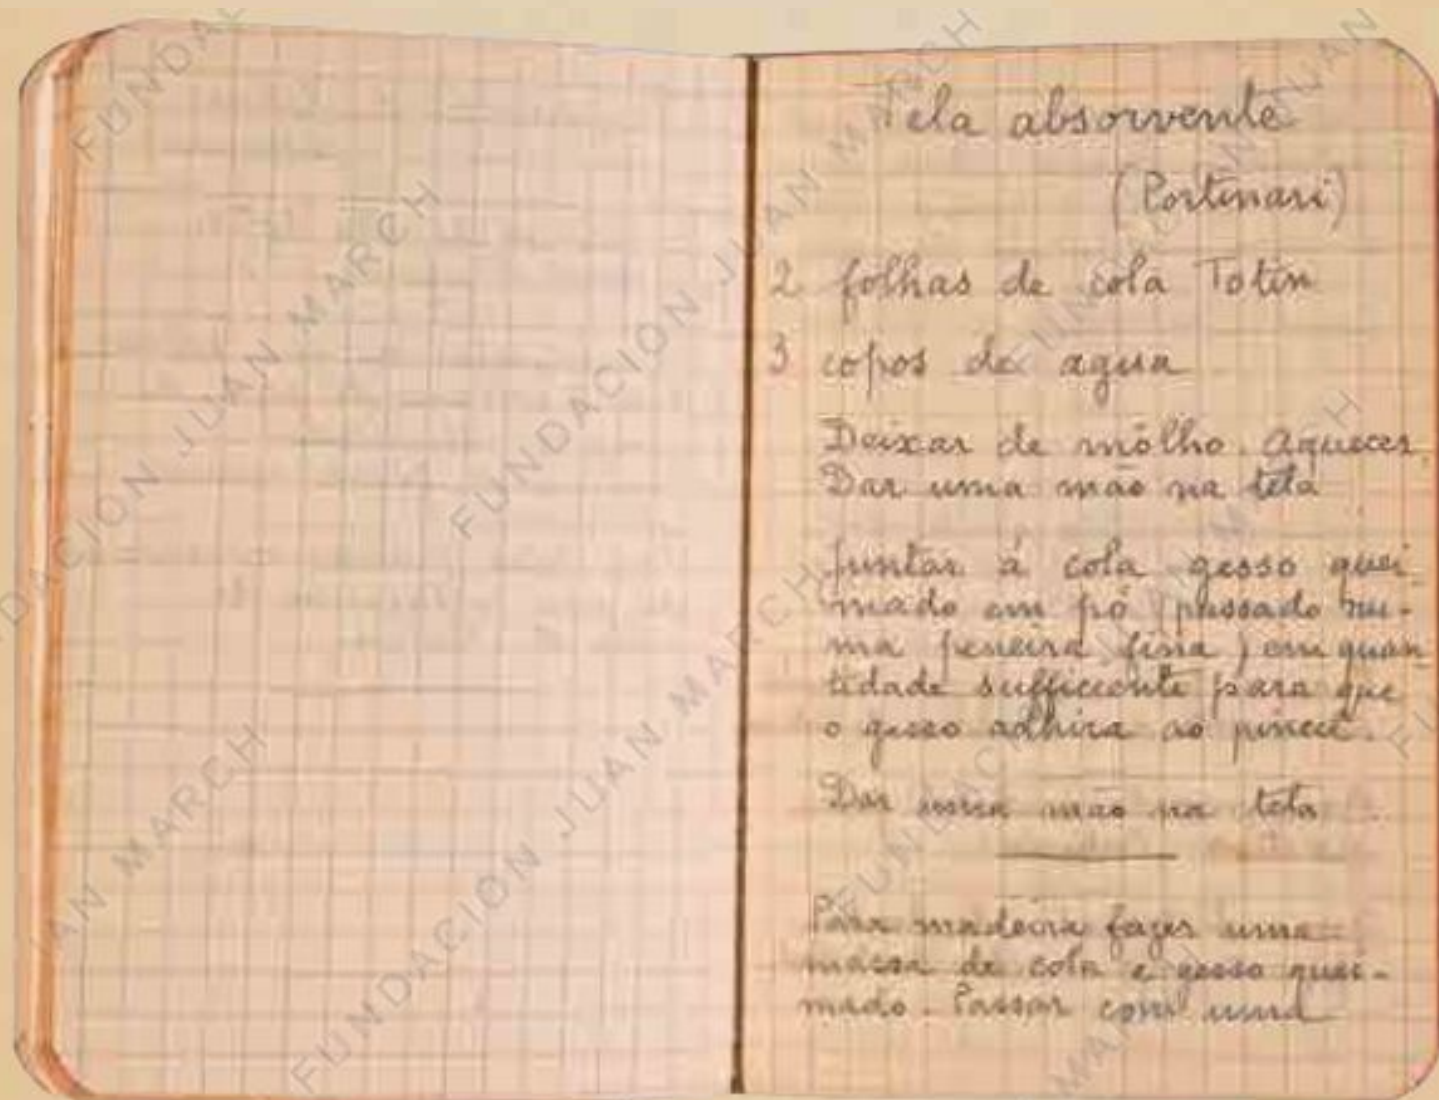 Tela absorvente
(Portinari)
2 folhas de cola Totin
3 copos de agua
Deixar de môlho. Aquecer.
Dar uma mão na tela
Juntar á cola gesso quei-
mado em pó (passado nu-
ma peneira fina) em quan-
tidade sufficiente para que
o gesso adhira ao pincel.
Dar uma mão na tela
Para madeira fazer uma
massa de cola e gesso quei-
mado. Passar com uma
FUNDACION JUAN MARCH